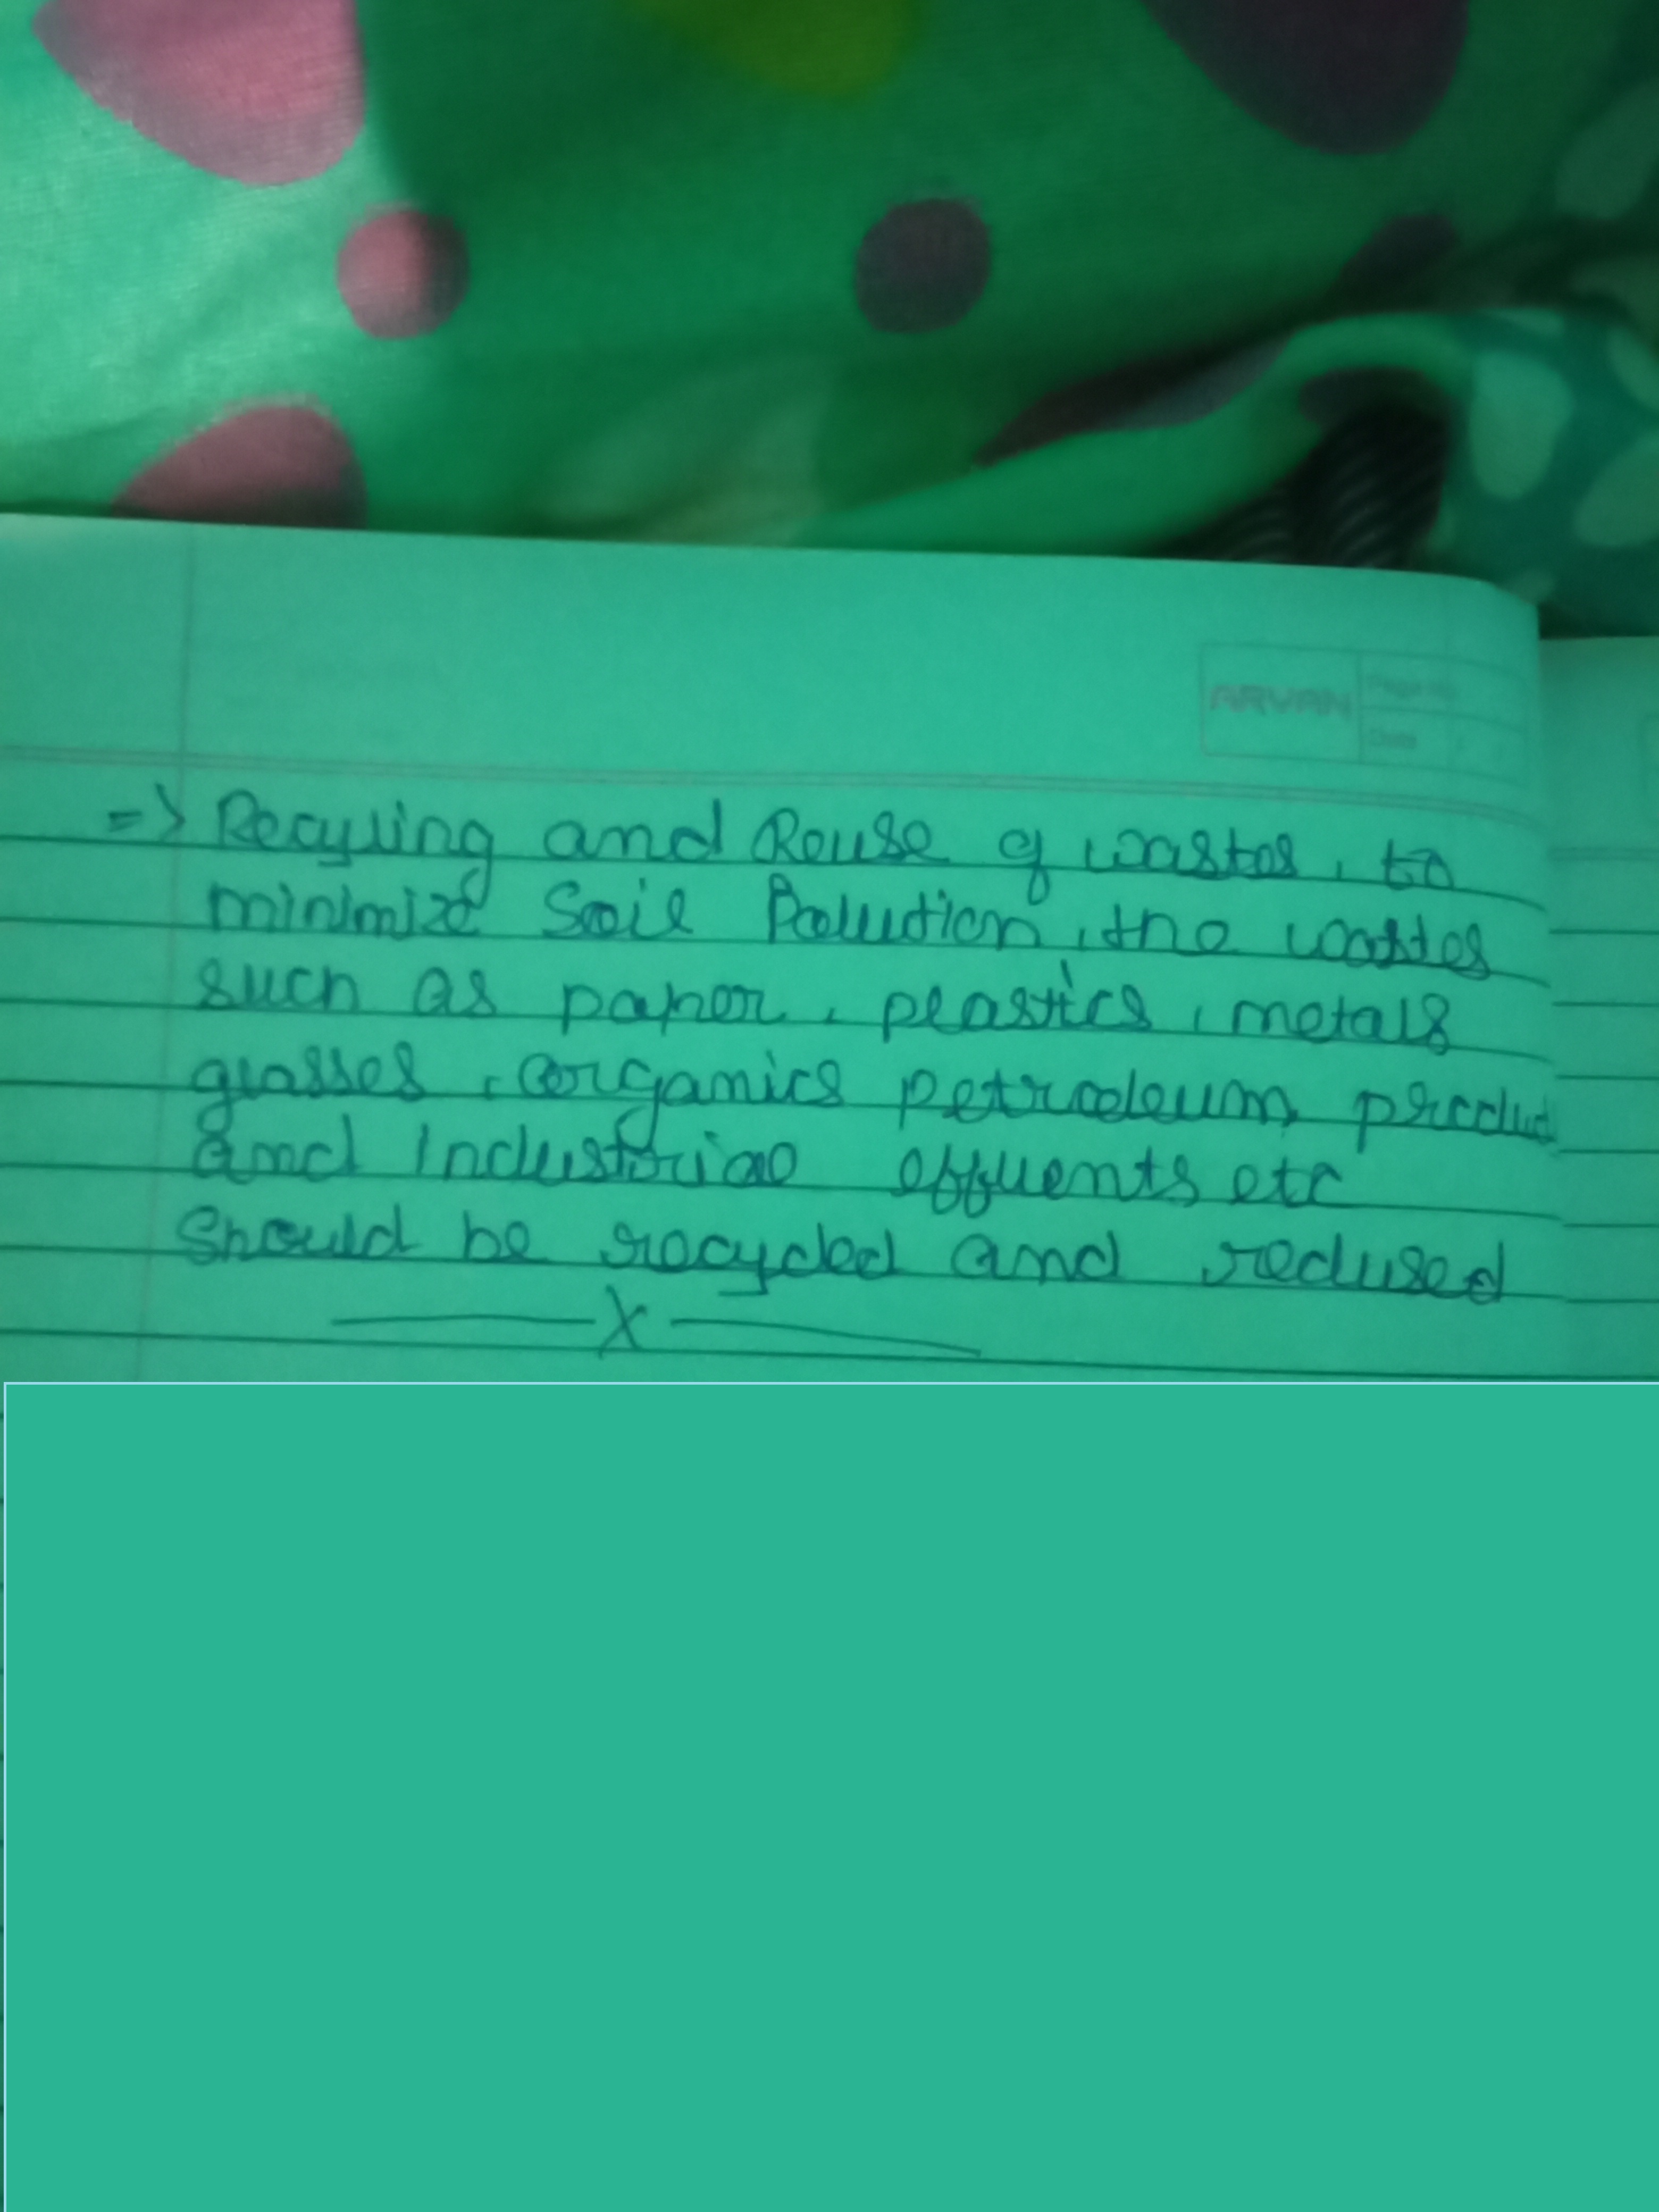 ARVAN
Page No.
Date / /
=> Recyling and Reuse of wastes, to
minimize Soil Polution, the wastes
such as paper, plastics, metals
glasses, organics petroleum produt
and Industrial effluents etc
Should be recycled and redused
—— X ——